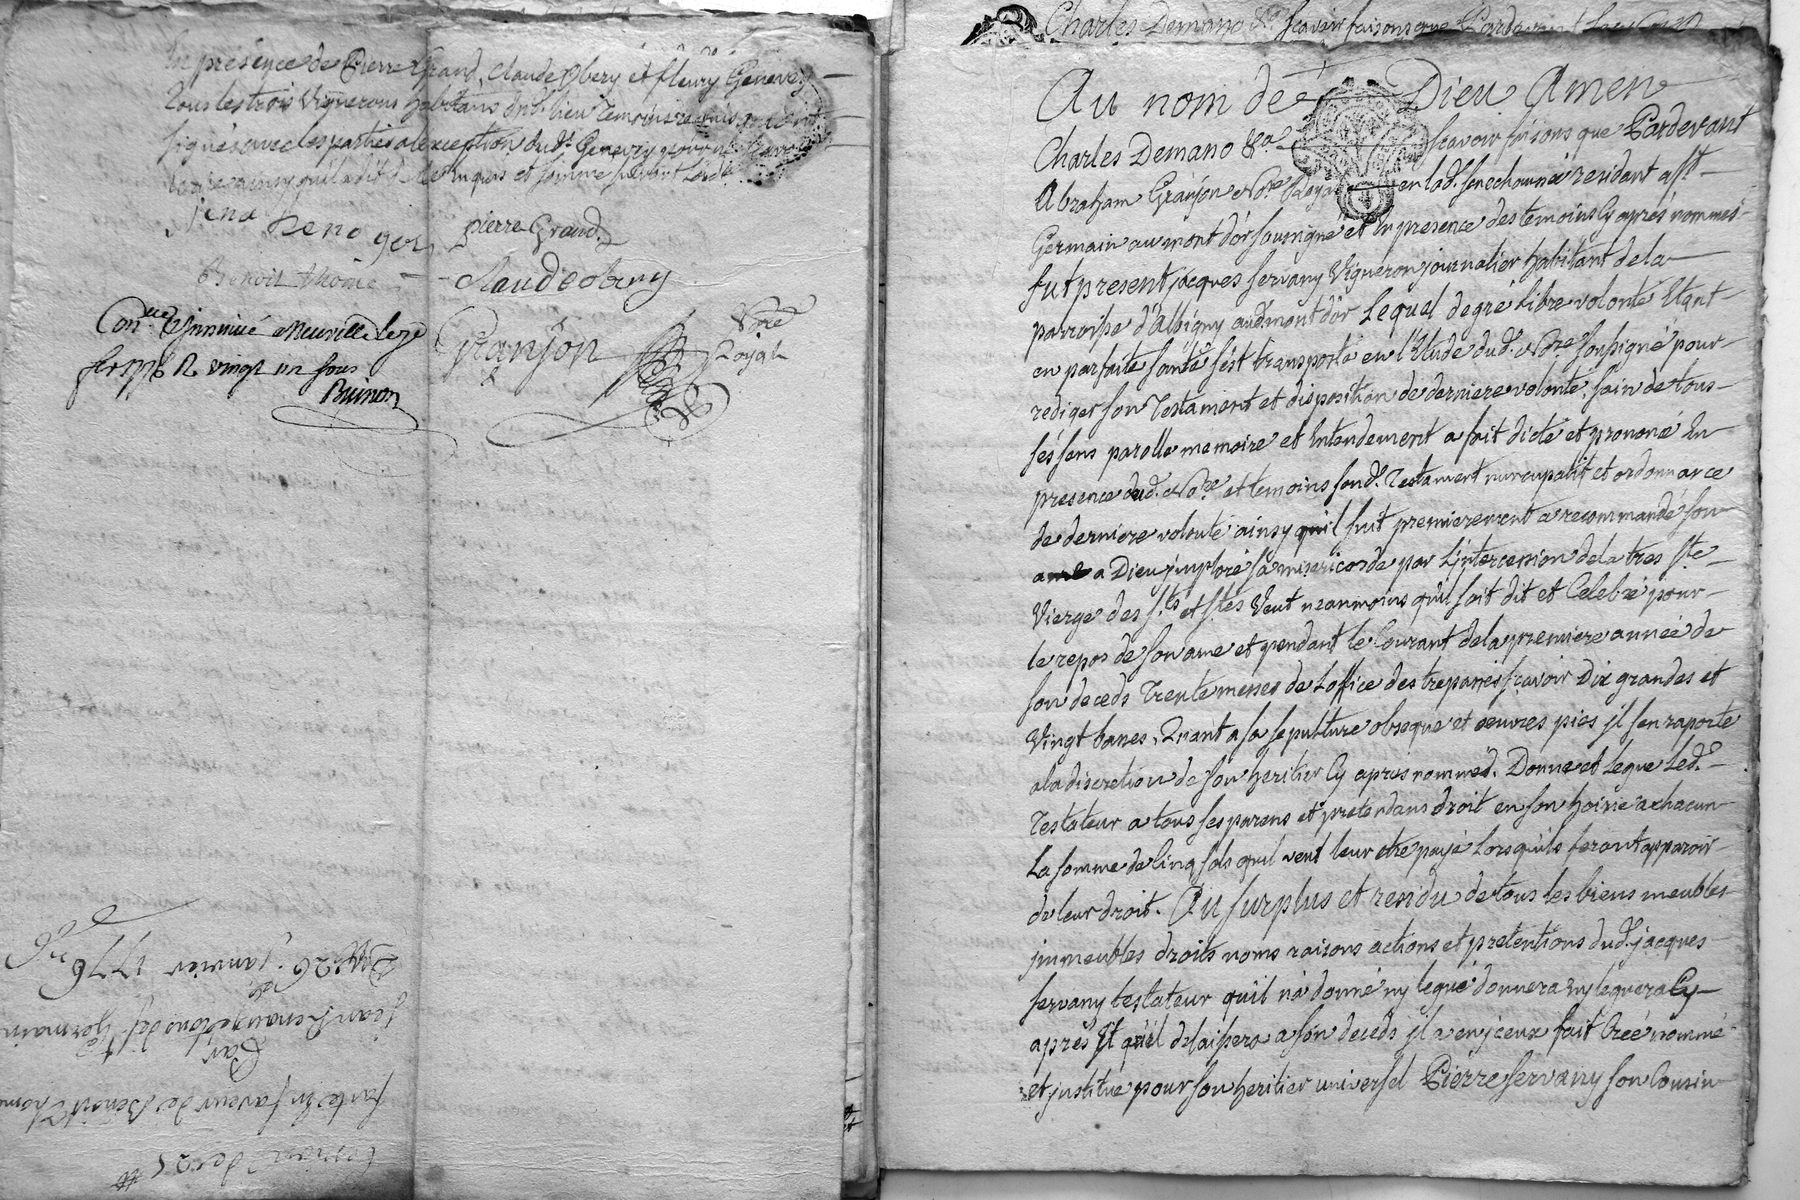 En presence de Pierre Grand, Claude Obery et fleury Genevey
tous les trois Vignerons habitans dud. lieu temoins requis
signés avec les parties a l'exception dud. Genevey pour ne scavoir
ainsy qu'il a dit de ce enquis et sommé suivant l'ord.ce
jena Renoger
pierre Grand
Benoit thome
Claude obery
Con.lle & jnsinué a Neuville le 9e
fer 1776 R vingt un sous
Brinon
Granjon
No.re
Royal
Charles Demano &a. scavoir faisons que Pardevant
Au nom de Dieu Amen
Charles Demano &a. scavoir faisons que Pardevant
Abraham Granjon No.re Royal en lad. senechaussée residant a St.
Germain au mont d'or soussigné et en presence des temoins Cy aprés nommes
fut present jacques servany Vigneron journalier habitant de la
parroisse d'Albigny audmont d'or Lequel de gré Libre volonté Etant
en parfaite santé s'est transporté en l'Etude dud. No.re soussigné pour
rediger son Testament et disposition de derniere volonté, sain de tous
sés sens parolle memoire et Entendement a fait dicté et prononcé En
presence dud. No.re et temoins sond. Testament nuncupatif et ordonnance
de derniere volonté ainsy quil suit premierement a recommandé son
ame a Dieu jmploré sa misericorde par L'jntercession de la tres Ste.
Vierge des s.ts et s.tes Veut neanmoins qu'il soit dit et Celebré pour
le repos de son ame et pendant le Courant de la premiere année de
son deceds Trente messes de L'office des trepassés scavoir Dix grandes et
Vingt basses, Quant a sa sepulture obseque et oeuvres pies jl s'en raporte
a la discretion de son heritier Cy apres nommed. Donne et Legue Led.
Testateur a tous ses parens et pretendans droit en son hoirie a chacun
La somme de Cinq sols quil veut leur etre payé Lorsquils feront apparoir
de leur droit. Au surplus et residu de tous les biens meubles
jmmeubles droits noms raisons actions et pretentions dud. jacques
servany testateur quil n'a donné ny legué donnera ny leguera Cy
aprés Et quil delaissera a son deceds jl a en jceux fait Créé nommé
et jnstitué pour son heritier universel Pierre servany son Cousin
Du 26. janvier 1776
jean Renauzet de St. Germain
Par
faite En faveur de Benoit Thome